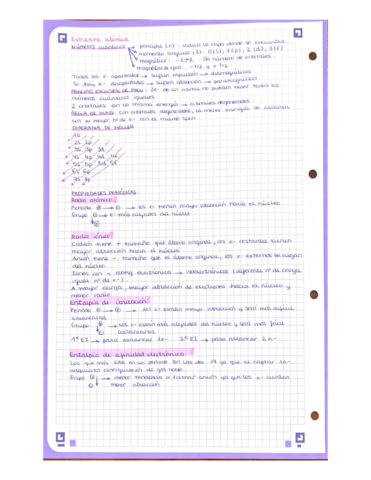 Estructura atómica
Números cuánticos → principal (n): indica la capa donde se encuentra
momento angular (l): 0(s), 1(p), 2(d), 3(f)
magnético: -l → +l Da número de orbitales
magnético spin: -1/2 y +1/2
Todos los e- apareados → sufren repulsión → diamagnéticos
Si hay e- desapareados → sufren atracción → paramagnéticos
PRINCIPIO EXCLUSIÓN DE PAULI: 2e- de un orbital no pueden tener todos los
números cuánticos iguales
2 orbitales con la misma energía → orbitales degenerados
REGLA DE HUND: con orbitales degenerados, la menor energía se alcanza
con el mayor nº de e- con el mismo spin
DIAGRAMA DE MOLLER
1s
2s 2p
3s 3p 3d
4s 4p 4d 4f
5s 5p 5d 5f
6s 6p
7s 7p
PROPIEDADES PERIÓDICAS
Radio atómico
Periodo ⊕ → ⊖ → los e- tienen mayor atracción hacia el núcleo
Grupo ⊖ → e- más alejados del núcleo
⊕
Radio iónico
Catión tiene + tamaño que átomo original, los e- restantes sufren
mayor atracción hacia el núcleo
Anión tiene + tamaño que el átomo original, los e- externos se alejan
del núcleo
Iones con = config. electrónica → isoelectrónicos (diferente nº de carga
igual nº de e-)
A mayor carga, mayor atracción de electrones hacia el núcleo y
menor radio
Entalpía de ionización
Periodo ⊖ → ⊕ → los e- sienten mayor atracción y será más difícil
arrancarlos
Grupo ⊕ → los e- están más alejados del núcleo y será más fácil
⊖ arrancarlos
1ª EI → para arrancar 1e- 2ª EI → para arrancar 2 e-
Entalpía de afinidad electrónica
Los que más EAE en un periodo son los del 17 ya que al captar 1e-
adquieren configuración de gas noble
Grupo ⊕ → menor tendencia a formar anión ya que los e- sienten
⊖ menor atracción